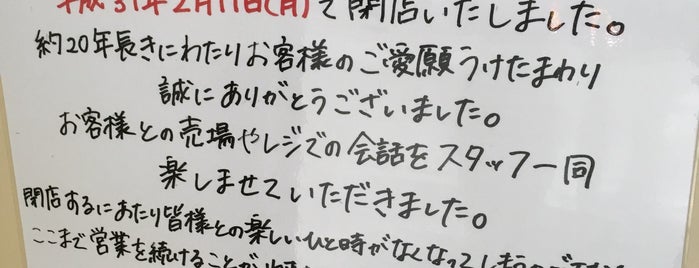 平成31年2月11日(月)で閉店いたしました。
約20年長きにわたりお客様のご愛願うけたまわり
誠にありがとうございました。
お客様との売場やレジでの会話をスタッフ一同
楽しませていただきました。
閉店するにあたり皆様との楽しいひと時がなくなってしまう
ここまで営業を続けることが